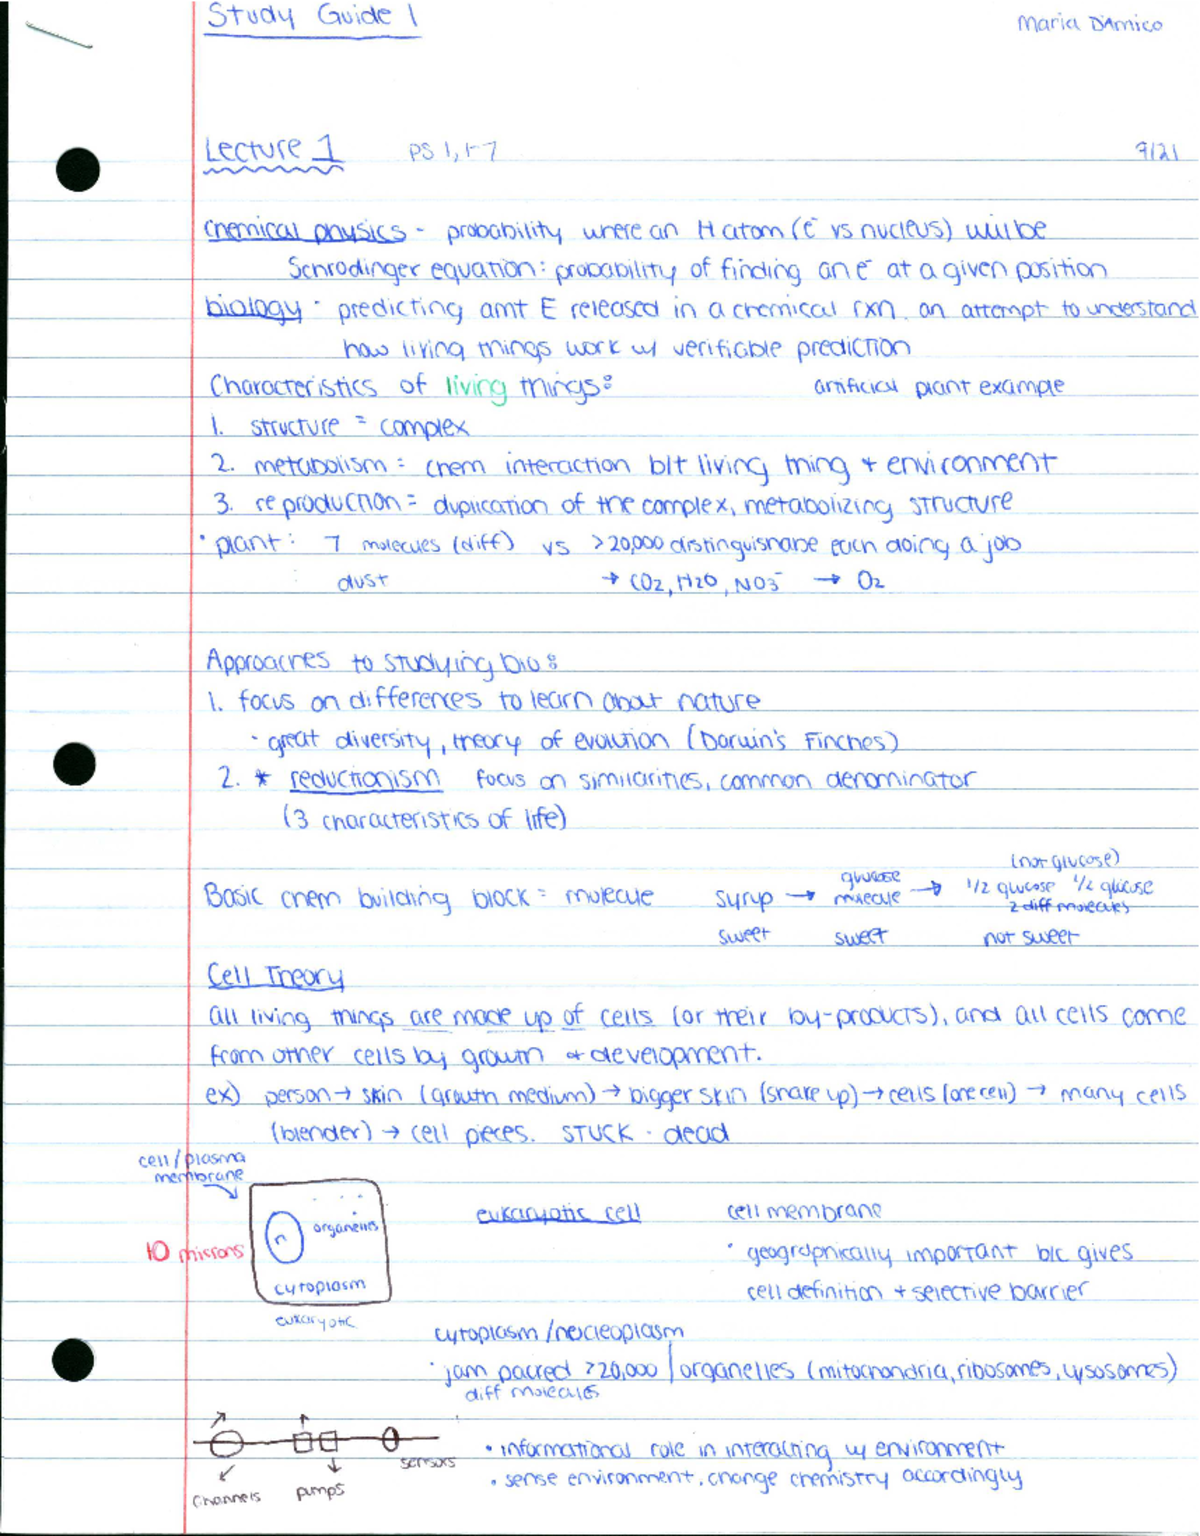 Study Guide 1
Maria D'Amico
Lecture 1 PS 1, 1-7 9/21
chemical physics - probability where an H atom (e⁻ vs nucleus) will be
Schrodinger equation: probability of finding an e⁻ at a given position
biology - predicting amt E released in a chemical rxn. an attempt to understand
how living things work w/ verifiable prediction
Characteristics of living things: artificial plant example
1. structure = complex
2. metabolism = chem interaction b/t living thing + environment
3. reproduction = duplication of the complex, metabolizing structure
• plant: 7 molecules (diff) vs >20,000 distinguishable each doing a job
dust → CO2, H2O, NO3⁻ → O2
Approaches to studying bio:
1. focus on differences to learn about nature
• great diversity, theory of evolution (Darwin's Finches)
2. * reductionism focus on similarities, common denominator
(3 characteristics of life)
(not glucose)
Basic chem building block = molecule syrup → glucose molecule → 1/2 glucose 1/2 glucose
2 diff molecules
sweet sweet not sweet
Cell Theory
All living things are made up of cells (or their by-products), and all cells come
from other cells by growth + development.
ex) person → skin (growth medium) → bigger skin (shake up) → cells (one cell) → many cells
(blender) → cell pieces. STUCK - dead
cell/plasma
membrane
organelles
n
10 microns
cytoplasm
eukaryotic
eukaryotic cell cell membrane
• geographically important b/c gives
cell definition + selective barrier
cytoplasm/nucleoplasm
• jam packed >20,000 | organelles (mitochondria, ribosomes, lysosomes)
diff molecules
channels pumps sensors
• informational role in interacting w/ environment
• sense environment, change chemistry accordingly